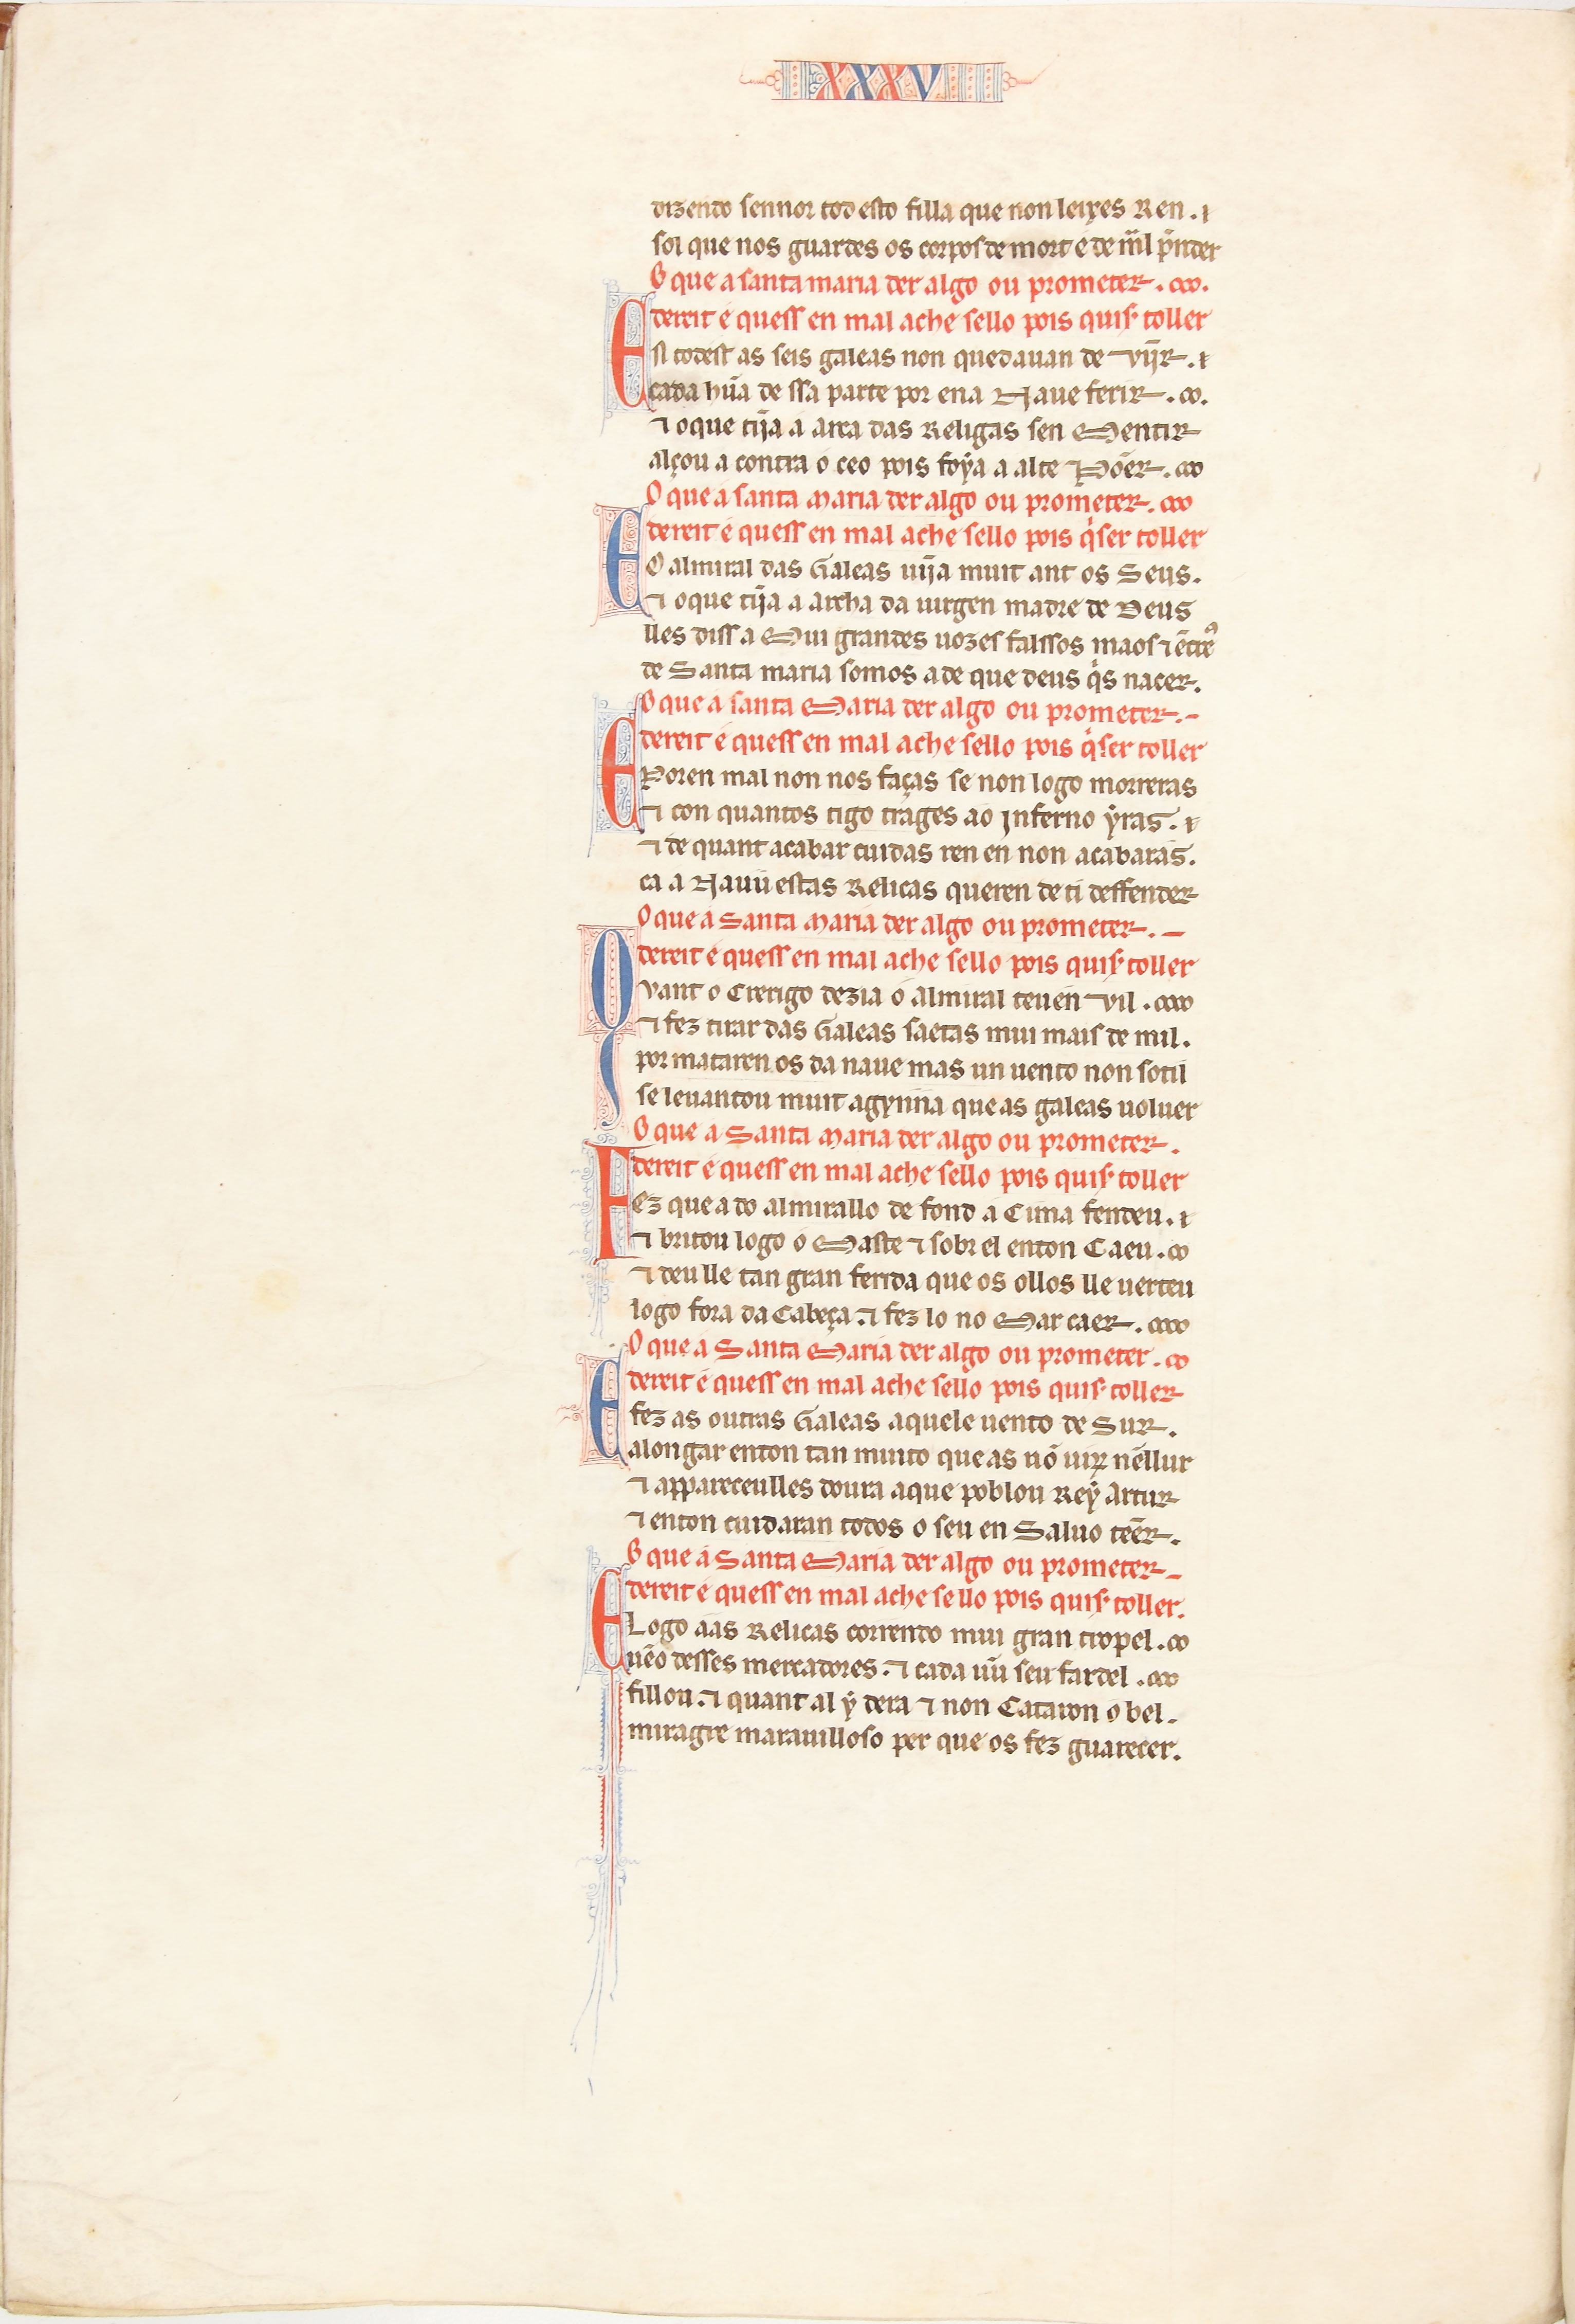 XXXV
dizendo sennor tod esto filla que non leixes Ren.
sol que nos guardes os corpos de mort e de mal p̃nder
O que a santa maria der algo ou prometer.
dereit é quess en mal ache sello pois quis̉ toller
Est todest as seis galeas non quedauan de vĩjr.
cada hũa de ssa parte por ena Naue ferir.
⁊ o que tĩja a arca das Religas sen Mentir
alçou a contra o ceo pois foÿa a alte Põer.
O que á santa Maria der algo ou prometer.
dereit é quess en mal ache sello pois q̉ser toller
E O almiral das Galeas uĩja muit ant os Seus.
⁊ o que tĩja a archa da uirgen madre de Deus
lles diss a Mui grandes uozes falssos maos ⁊ ẽcreꝯ
de Santa maria somos a de que deus q̉s nacer.
O que á santa Maria der algo ou prometer.
dereit é quess en mal ache sello pois q̉ser toller
E Poren mal non nos faças se non logo morreras
⁊ con quantos tigo trages ao Jnferno ÿras.
⁊ de quant acabar cuidas ren en non acabaras.
ca a Nauu estas Relicas queren de ti deffender
O que á Santa Maria der algo ou prometer.
dereit é quess en mal ache sello pois quis̉ toller
Qvant o Crerigo dezia ó almiral teuen vil.
⁊ fez tirar das Galeas saetas mui mais de mil.
por mataren os da naue mas un uento non sotil
se leuantou muit agynna que as galeas uoluer
O que a Santa Maria der algo ou prometer.
dereit é quess en mal ache sello pois quis̉ toller
Fez que a do almirallo de fond á Cima fendeu.
⁊ britou logo ó Maste ⁊ sobr el enton Caeu.
⁊ deu lle tan gran ferida que os ollos lle uerteu
logo fora da Cabeça. ⁊ fez lo no Mar caer.
O que á Santa Maria der algo ou prometer.
dereit é quess en mal ache sello pois quis̉ toller
E fez as outras Galeas aquele uento de Sur.
alongar enton tan muito que as nõ uirꝝ nẽllur
⁊ appareceulles doura a que poblou Reÿ Artur
⁊ enton cuidaran todos o seu en Saluo teẽr.
O que á Santa Maria der algo ou prometer
dereit é quess en mal ache sello pois quis̉ toller.
E Logo áas Relicas correndo mui gran tropel.
uẽo desses mercadores. ⁊ cada uũ seu fardel.
fillou. ⁊ quant al ÿ dera ⁊ non Cataron o bel.
miragre marauilloso per que os fez guarecer.